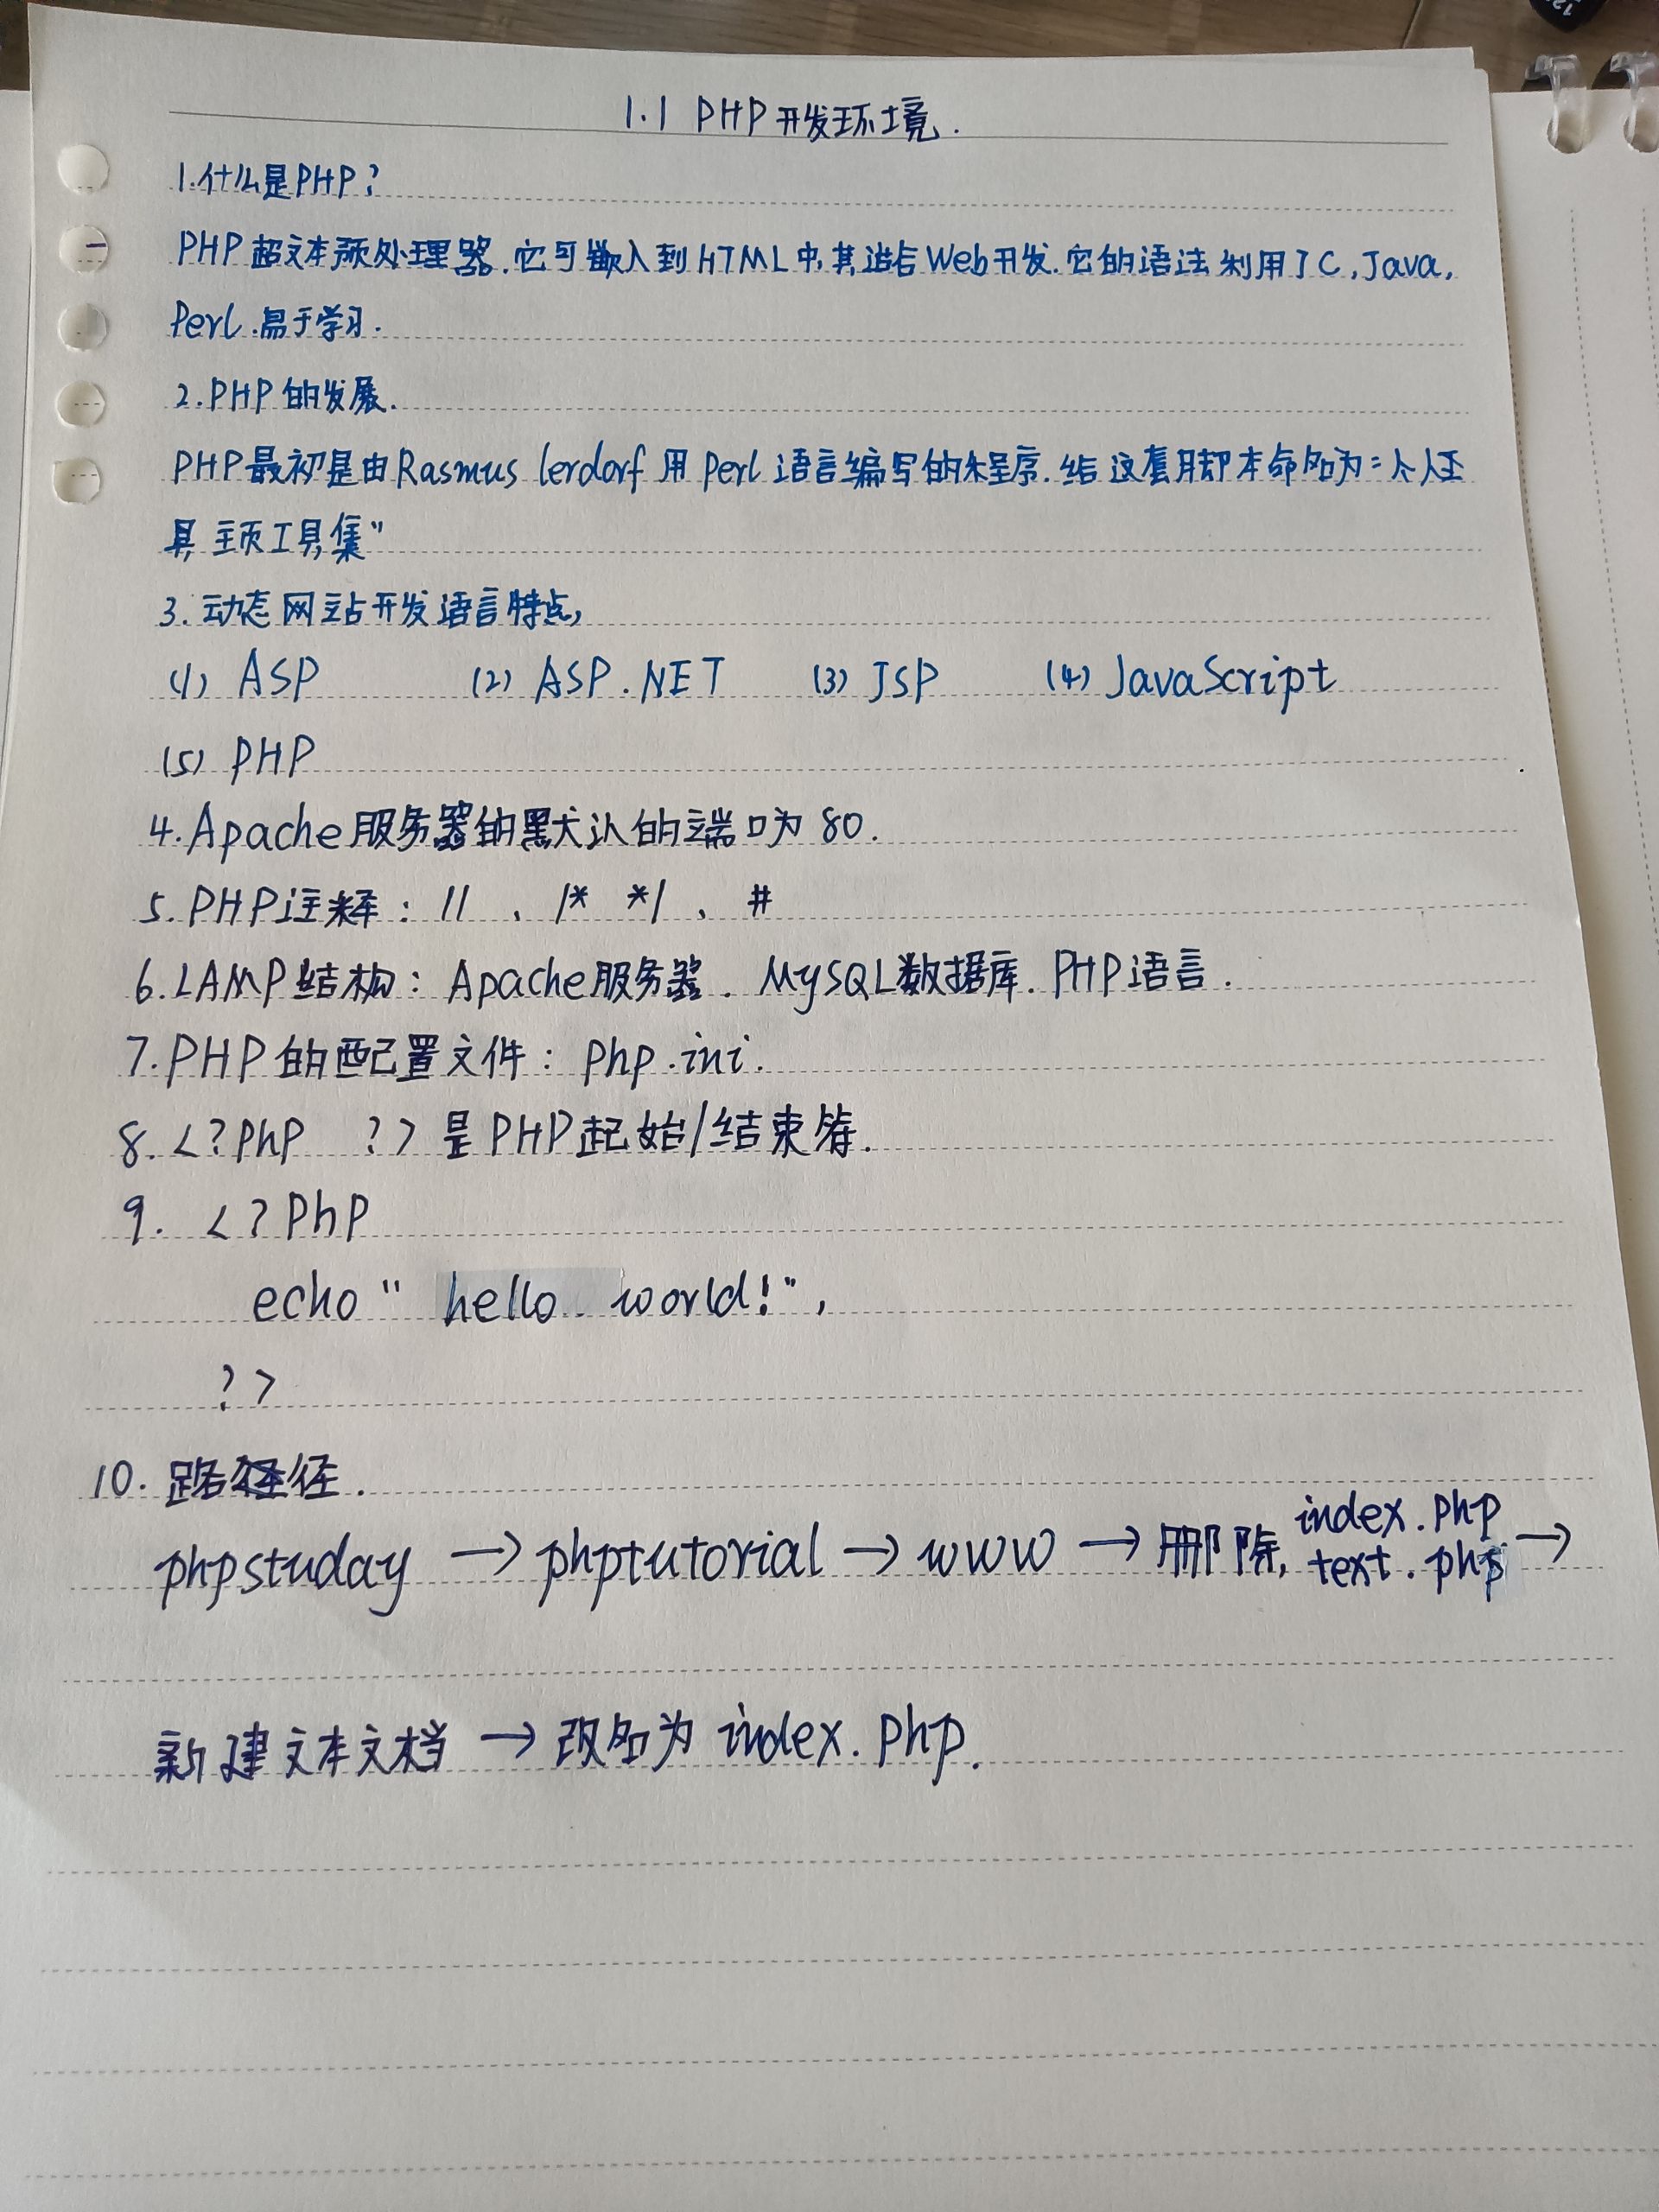 1.1 PHP开发环境.
1.什么是PHP?
PHP超文本预处理器.它可嵌入到HTML中,其适合Web开发.它的语法利用了C,Java,
Perl.易于学习.
2.PHP的发展.
PHP最初是由Rasmus lerdorf 用 Perl 语言编写的程序.给这套脚本命名为"个人
主页工具集"
3.动态网站开发语言特点,
(1) ASP (2) ASP.NET (3) JSP (4) JavaScript
(5) PHP
4.Apache服务器的默认的端口为80.
5.PHP注释: // 、 /* */ 、 #
6.LAMP结构: Apache服务器. MySQL数据库. PHP语言.
7.PHP的配置文件: php.ini.
8.<?PhP ?>是PHP起始/结束符.
9. <?PhP
echo " hello world!",
?>
10.路径.
phpstuday → phptutorial → www → 删除, index.php
text.php →
新建文本文档 → 改名为 index.php.